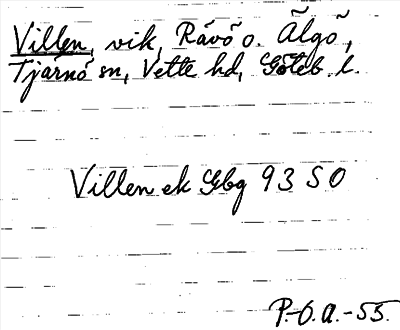 Villen, vik, Råvö o. Älgö,
Tjärnö sn, Vette hd, Göteb. l.
Villen ek Gbg 93 SO
P.-O.A.-55.